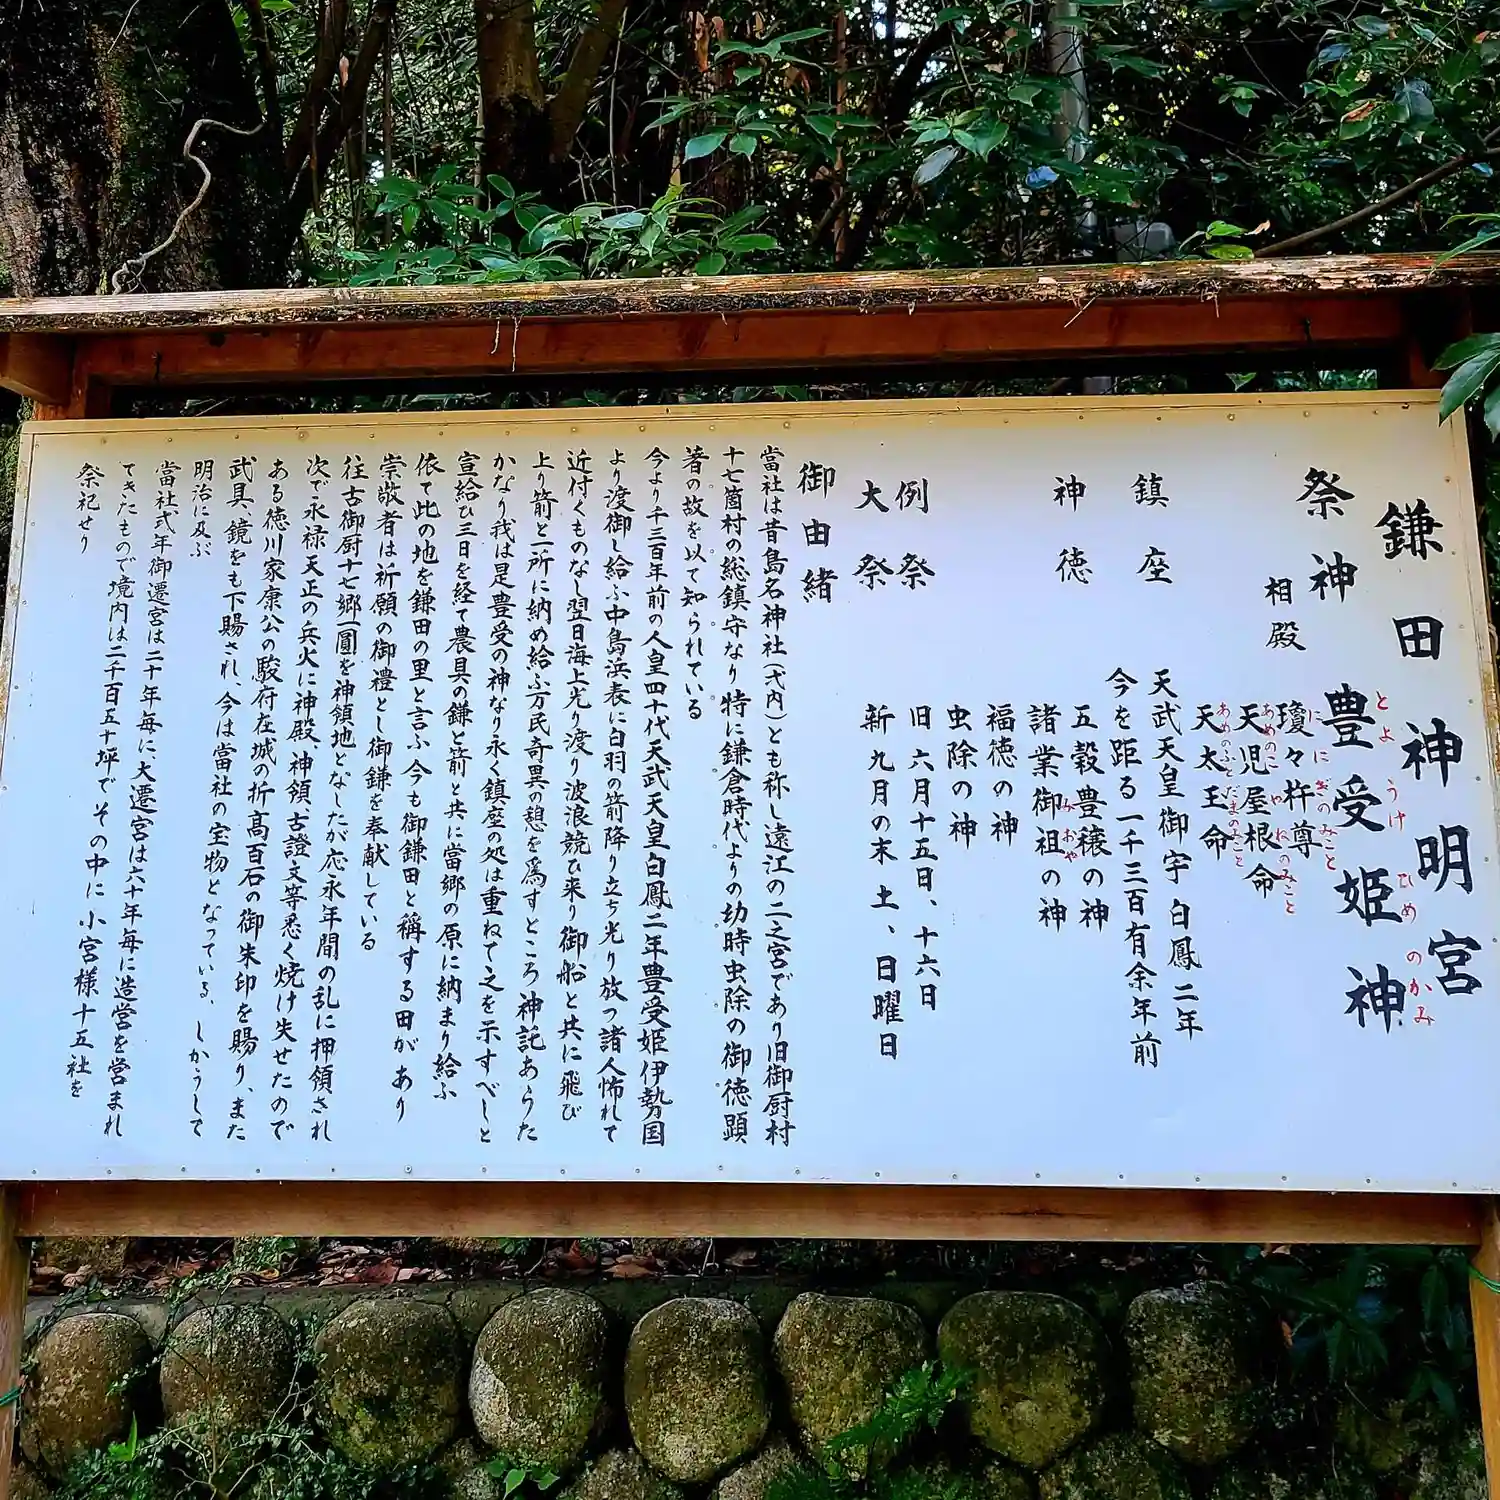 鎌田神明宮
祭神 豊受姫神
とようけひめのかみ
相殿 瓊々杵尊
ににぎのみこと
天児屋根命
あめのこやねのみこと
天太玉命
あめのふとだまのみこと
鎮座 天武天皇御宇白鳳二年
今を距る一千三百有余年前
神徳 五穀豊穣の神
諸業御祖の神
みおや
福徳の神
虫除の神
例祭 旧六月十五日、十六日
大祭 新九月の末 土、日曜日
御由緒
當社は昔島名神社(式内)とも称し遠江の二之宮であり旧御厨村
十七箇村の総鎮守なり特に鎌倉時代よりの功時虫除の御徳顕
著の故を以て知られている
今より千三百年前の人皇四十代天武天皇白鳳二年豊受姫伊勢国
より渡御し給ふ中島浜表に白羽の箭降り立ち光り放つ諸人怖れて
近付くものなし翌日海上光り渡り波浪競ひ来り御船と共に飛び
上り箭と一所に納め給ふ万民奇異の憩を爲すところ神託あらた
かなり我は是豊受の神なり永く鎮座の処は重ねて之を示すべしと
宣給ひ三日を経て農具の鎌と箭と共に當郷の原に納まり給ふ
依て此の地を鎌田の里と言ふ今も御鎌田と稱する田があり
崇敬者は祈願の御禮とし御鎌を奉献している
往古御厨十七郷一圓を神領地となしたが応永年間の乱に押領され
次で永禄天正の兵火に神殿、神領、古證文等悉く焼け失せたので
ある徳川家康公の駿府在城の折高百石の御朱印を賜り、また
武具、鏡をも下賜され、今は當社の宝物となっている、しかうして
明治に及ぶ
當社式年御遷宮は二十年毎に、大遷宮は六十年毎に造営を営まれ
てきたもので境内は二千百五十坪でその中に小宮様十五社を
祭祀せり